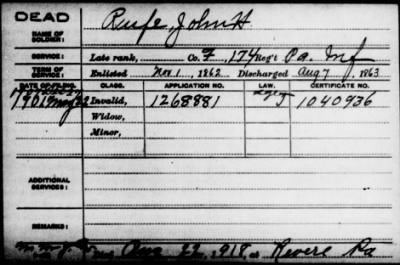 DEAD
NAME OF SOLDIER: Rufe, John H
SERVICE: Late rank, Co. F, 174 Reg't Pa. Inf
TERM OF SERVICE: Enlisted Nov 1, 1862 Discharged Aug 7, 1863
DATE OF FILING. CLASS. APPLICATION NO. LAW. CERTIFICATE NO.
1901 May 22 Invalid, 1268881 J 1040936
Widow,
Minor,
ADDITIONAL SERVICES:
REMARKS:
Aug 22, 1918, at Revere Pa